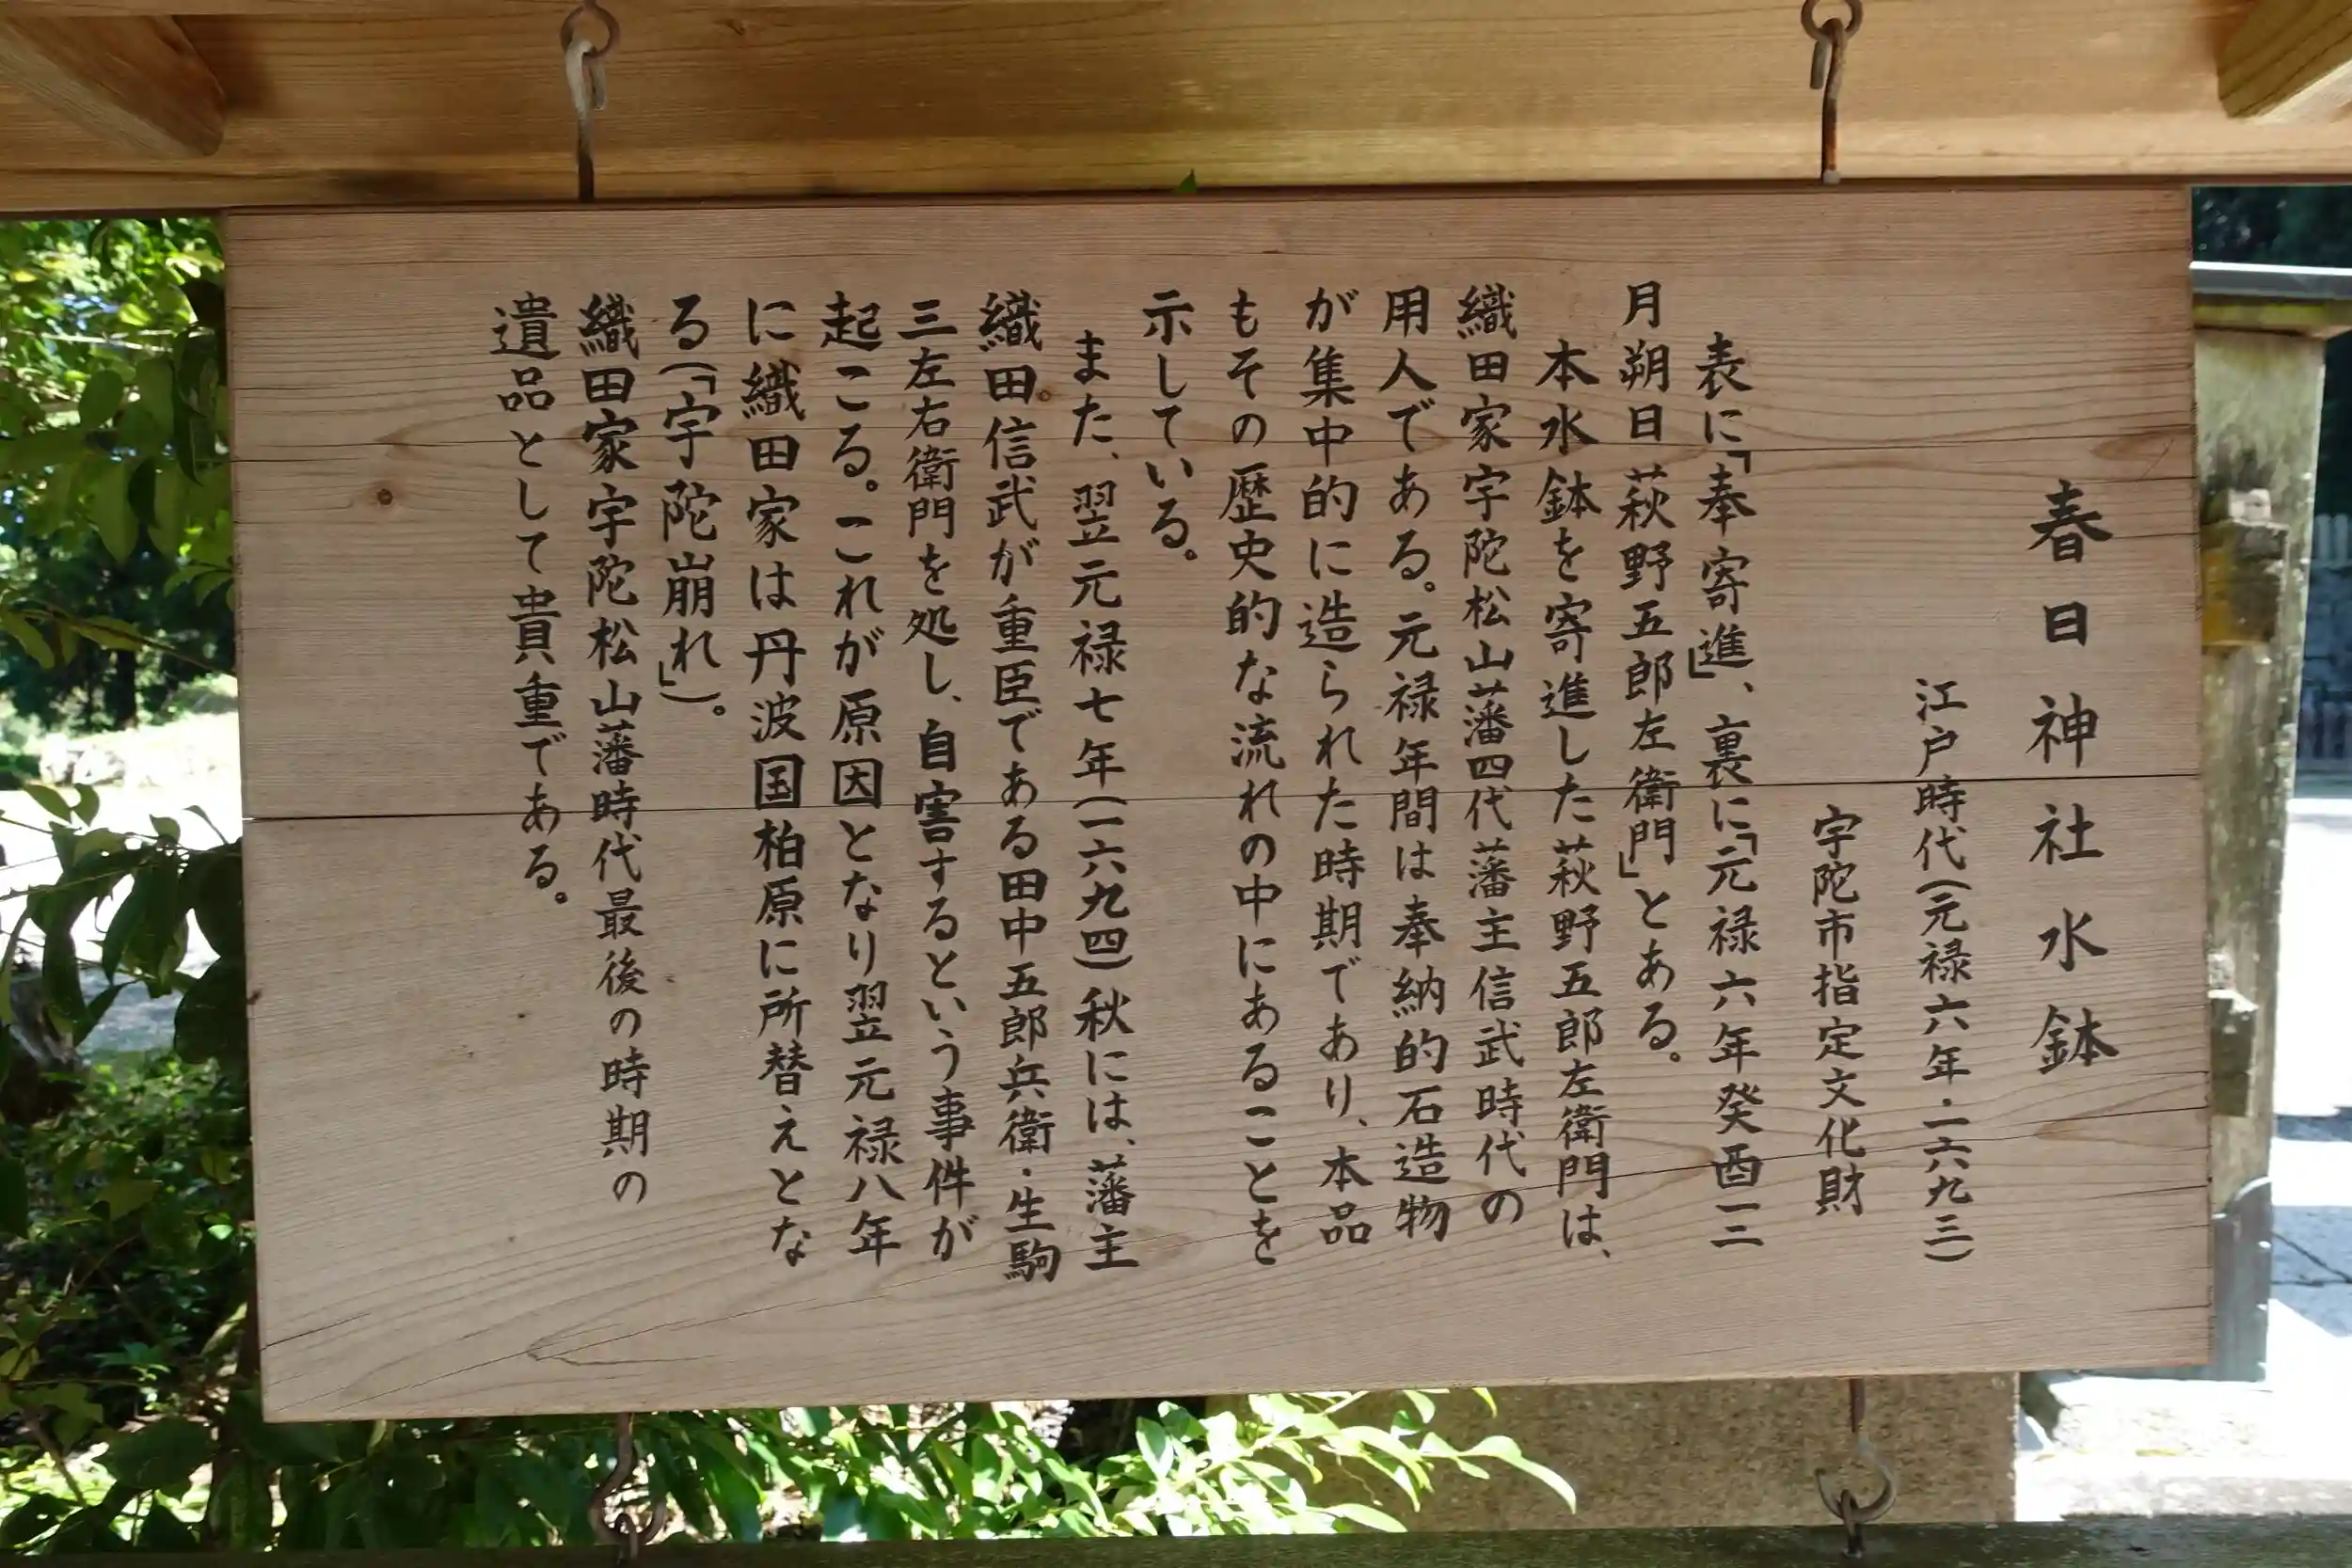 春日神社水鉢
江戸時代(元禄六年・一六九三)
宇陀市指定文化財
表に「奉寄進」、裏に「元禄六年癸酉二
月朔日萩野五郎左衛門」とある。
本水鉢を寄進した萩野五郎左衛門は、
織田家宇陀松山藩四代藩主信武時代の
用人である。元禄年間は奉納的石造物
が集中的に造られた時期であり、本品
もその歴史的な流れの中にあることを
示している。
また、翌元禄七年(一六九四)秋には、藩主
織田信武が重臣である田中五郎兵衛・生駒
三左右衛門を処し、自害するという事件が
起こる。これが原因となり翌元禄八年
に織田家は丹波国柏原に所替えとな
る(「宇陀崩れ」)。
織田家宇陀松山藩時代最後の時期の
遺品として貴重である。